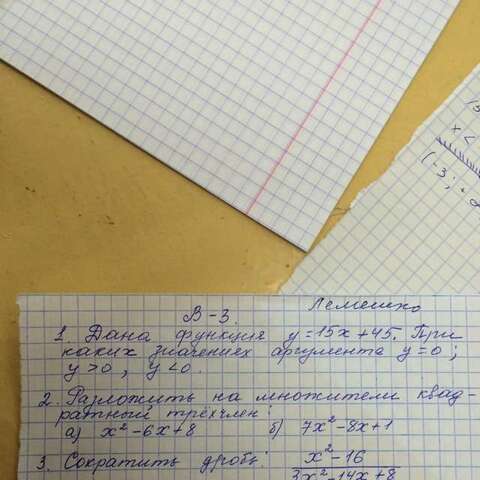 В-3
Лемешко
1. Дана функция y=15x+45. При
каких значениях аргумента y=0;
y>0, y<0.
2. Разложить на множители квад-
ратный трёхчлен:
а) x²-6x+8 б) 7x²-8x+1
3. Сократить дробь: x²-16
3x²-14x+8
x <
(-3;